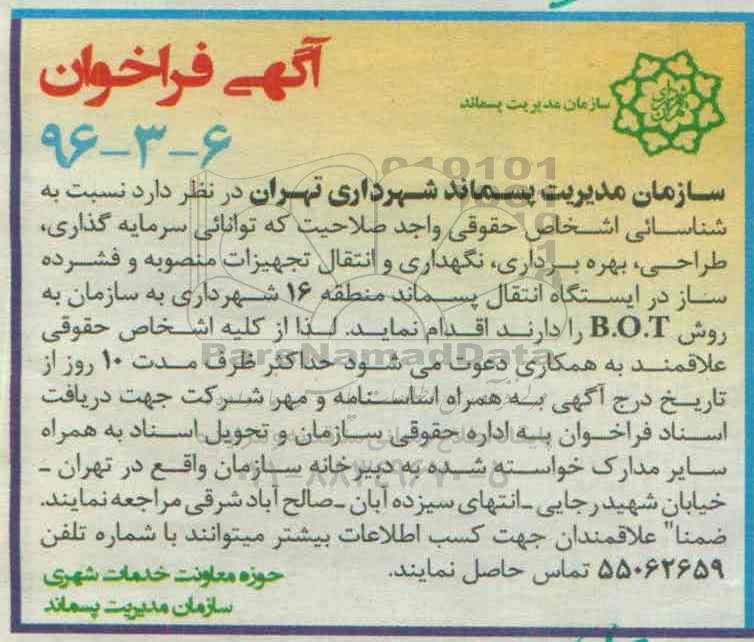 آگهی فراخوان
سازمان مدیریت پسماند
۹۶-۳-۶
سازمان مدیریت پسماند شهرداری تهران در نظر دارد نسبت به
شناسائی اشخاص حقوقی واجد صلاحیت که توانائی سرمایه گذاری،
طراحی، بهره برداری، نگهداری و انتقال تجهیزات منصوبه و فشرده
ساز در ایستگاه انتقال پسماند منطقه ۱۶ شهرداری به سازمان به
روش B.O.T را دارند اقدام نماید. لذا از کلیه اشخاص حقوقی
ParsNamadData
علاقمند به همکاری دعوت می شود حداکثر ظرف مدت ۱۰ روز از
تاریخ درج آگهی به همراه اساسنامه و مهر شرکت جهت دریافت
اسناد فراخوان به اداره حقوقی سازمان و تحویل اسناد به همراه
سایر مدارک خواسته شده به دبیرخانه سازمان واقع در تهران -
۰۲۱-۸۸۳۴۹۶۷۰-۵
خیابان شهید رجایی -انتهای سیزده آبان -صالح آباد شرقی مراجعه نمایند.
ضمنا" علاقمندان جهت کسب اطلاعات بیشتر میتوانند با شماره تلفن
۵۵۰۶۲۶۵۹ تماس حاصل نمایند.
حوزه معاونت خدمات شهری
سازمان مدیریت پسماند